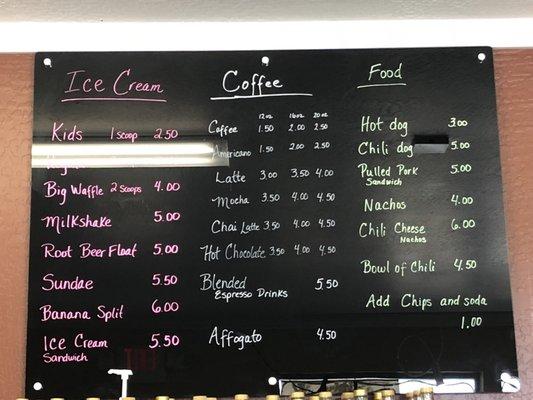 Ice Cream
Kids 1 scoop 2.50
Big Waffle 2 scoops 4.00
Milkshake 5.00
Root Beer Float 5.00
Sundae 5.50
Banana Split 6.00
Ice Cream 5.50
Sandwich
Coffee
12oz 16oz 20oz
Coffee 1.50 2.00 2.50
Americano 1.50 2.00 2.50
Latte 3.00 3.50 4.00
Mocha 3.50 4.00 4.50
Chai Latte 3.50 4.00 4.50
Hot Chocolate 3.50 4.00 4.50
Blended 5.50
Espresso Drinks
Affogato 4.50
Food
Hot dog 3.00
Chili dog 5.00
Pulled Pork 5.00
Sandwich
Nachos 4.00
Chili Cheese 6.00
Nachos
Bowl of Chili 4.50
Add Chips and soda
1.00